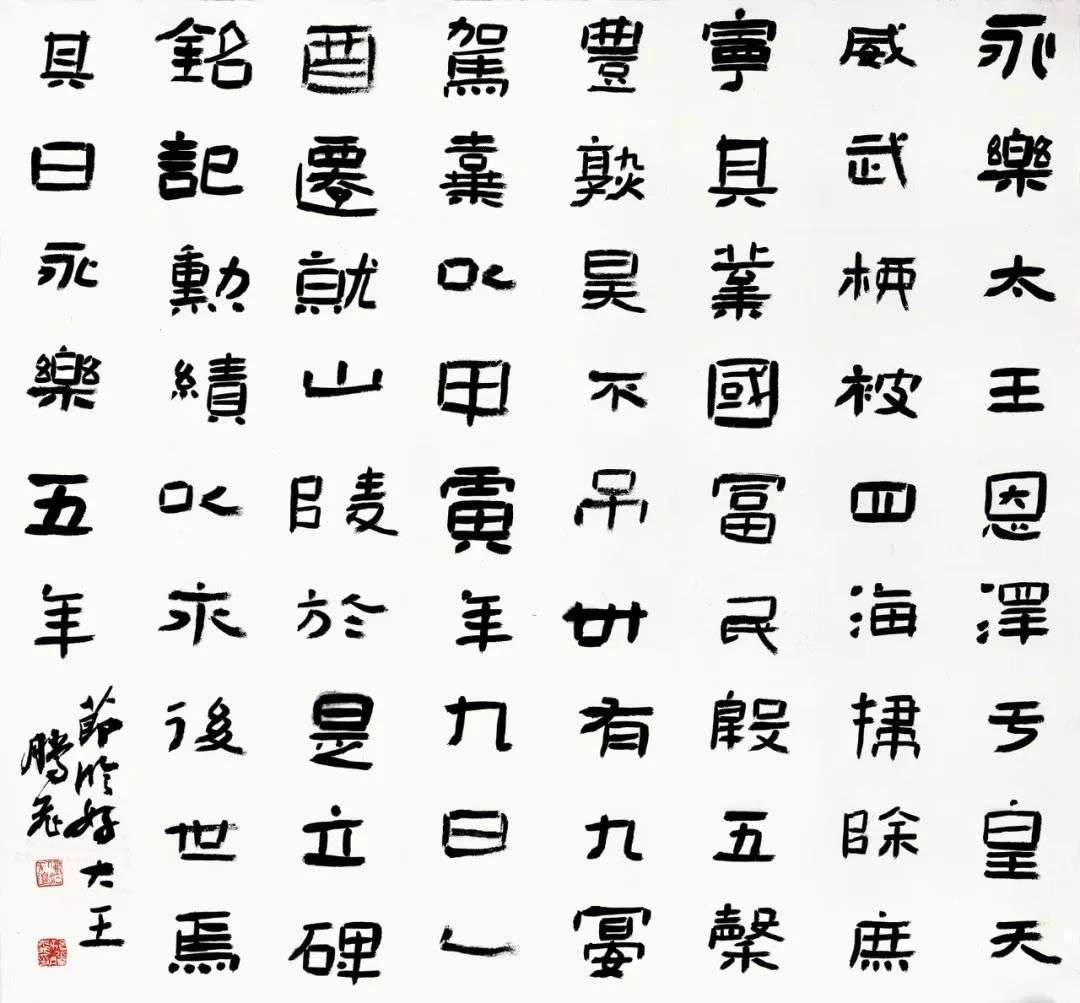 永樂太王恩澤于皇天
威武柄被四海掃除庶
寧其業國富民殷五穀
豐熟昊不弔卅有九宴
駕棄以甲寅年九日乙
酉遷就山陵於是立碑
銘記勳績以永後世焉
其日永樂五年
節臨好大王
鵬飛